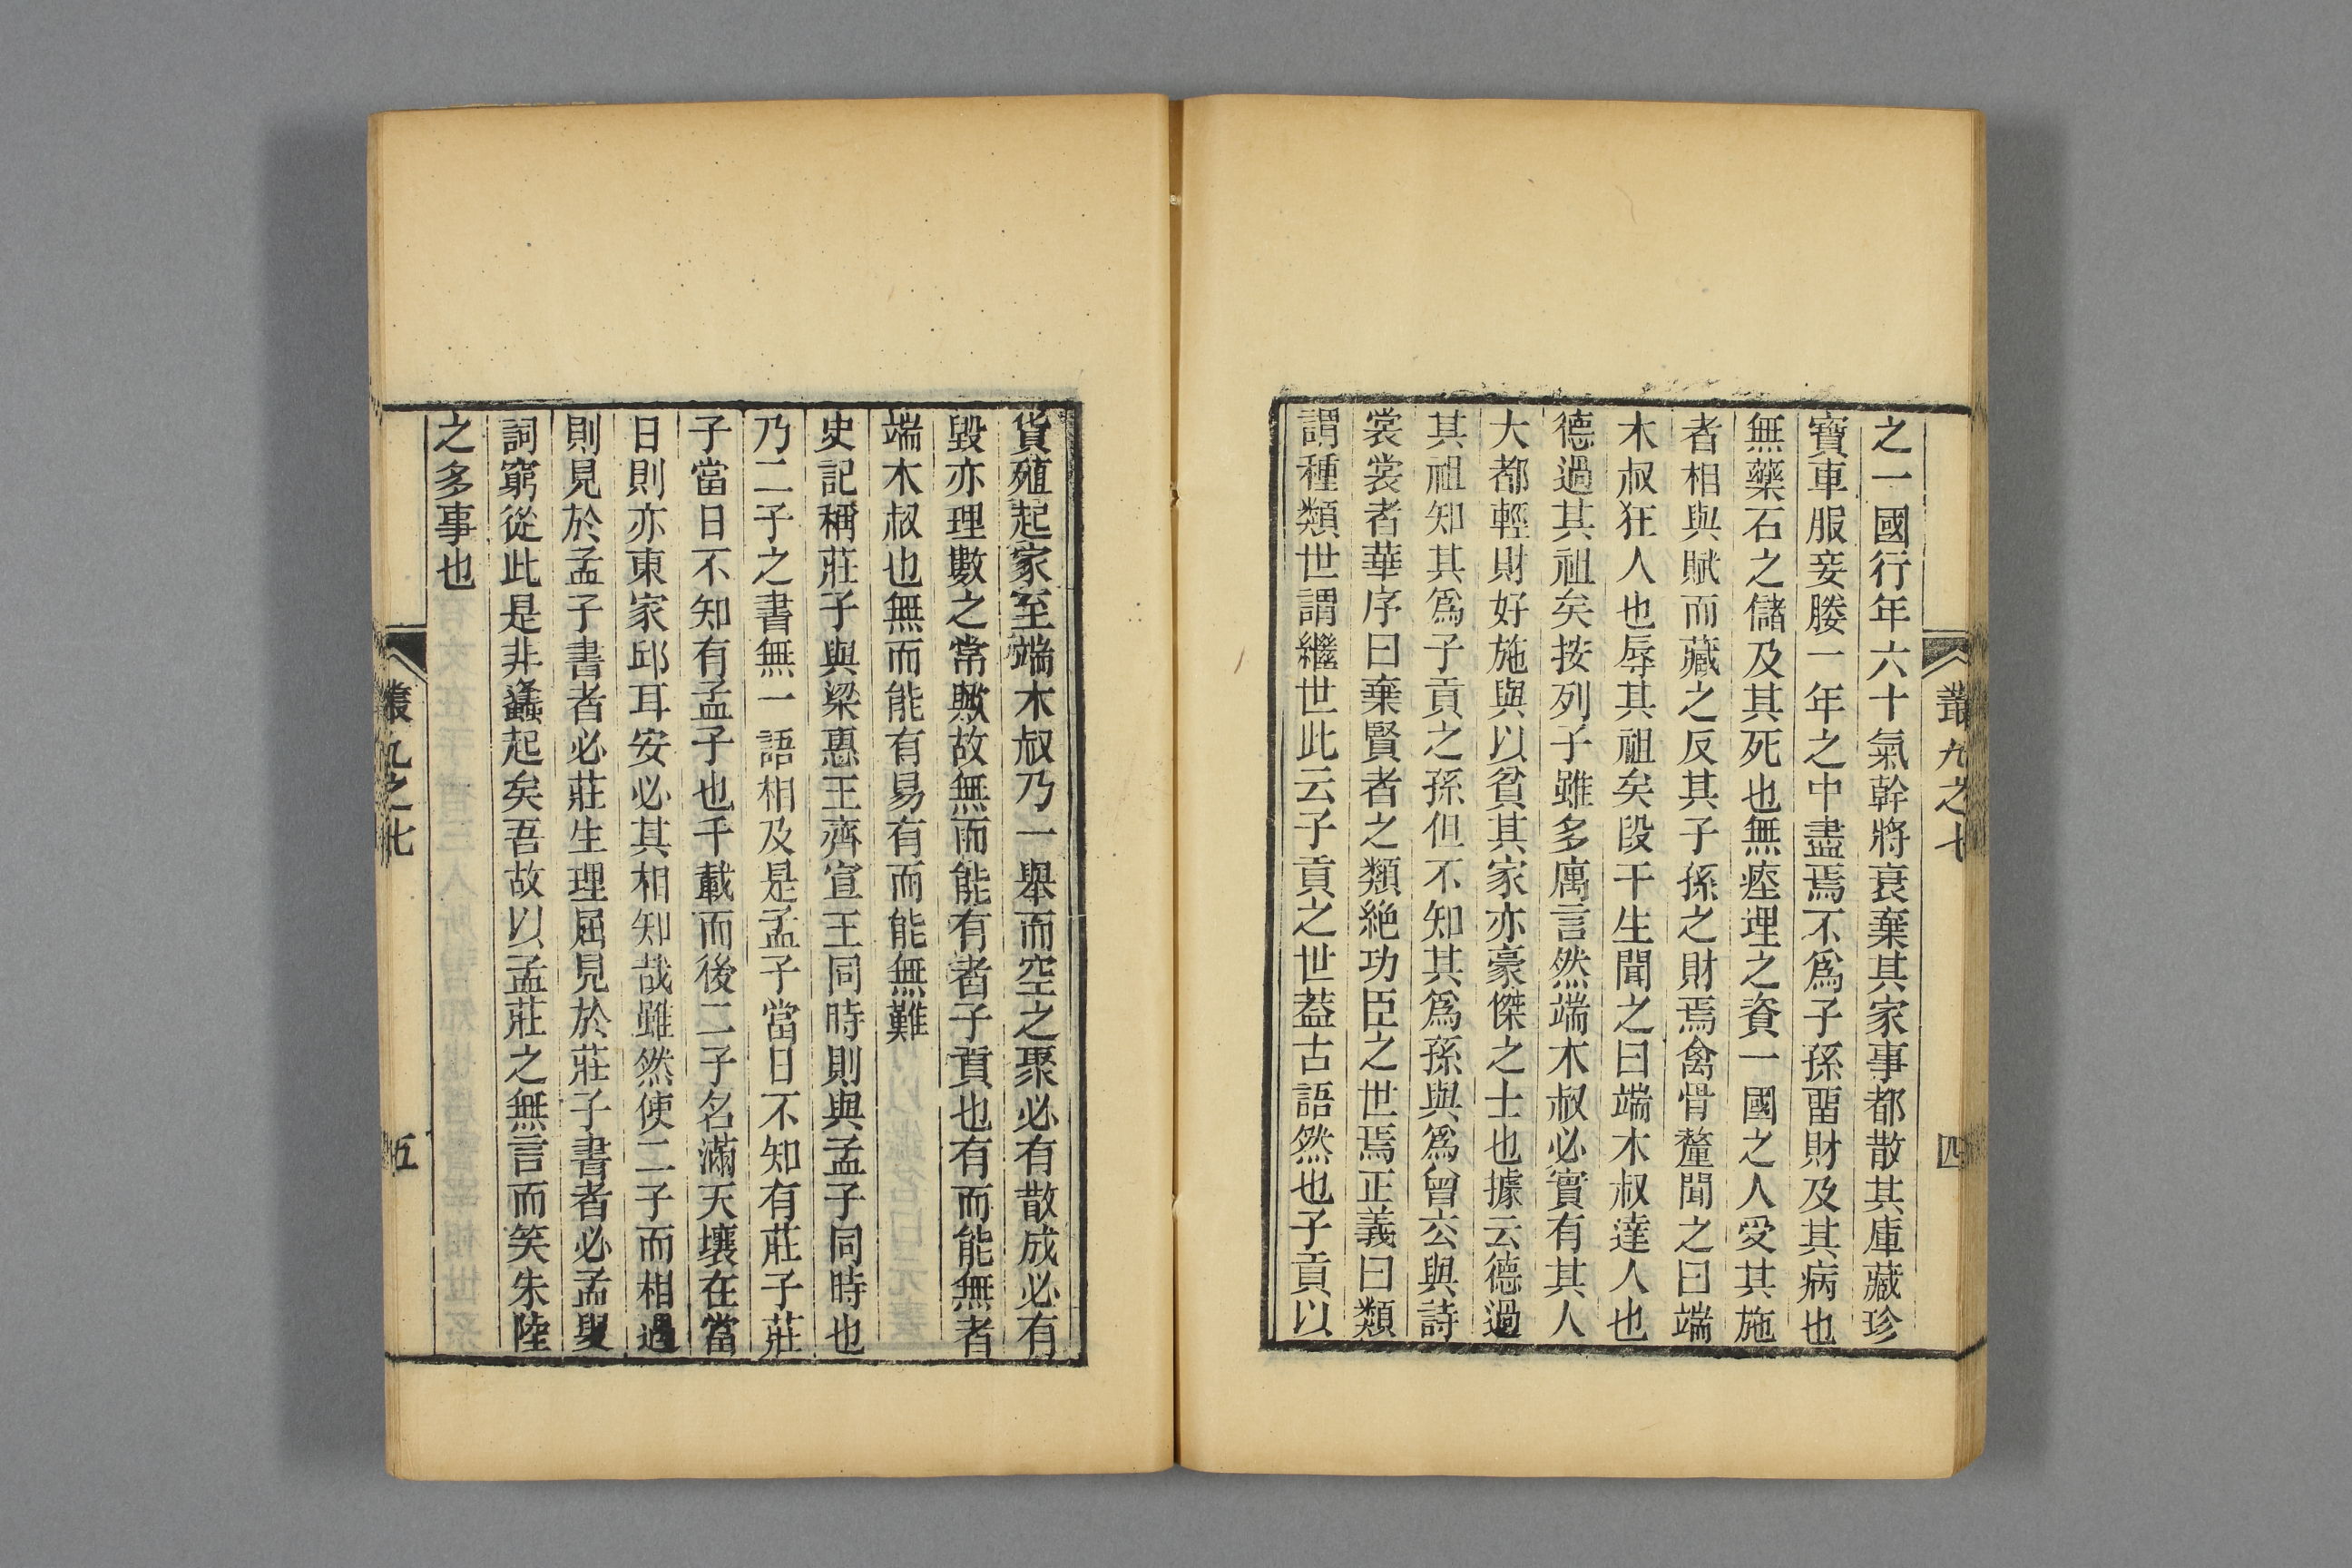 叢九之七
四
之一國行年六十氣幹將衰棄其家事都散其庫藏珍
寶車服妾媵一年之中盡焉不爲子孫畱財及其病也
無藥石之儲及其死也無瘞埋之資一國之人受其施
者相與賦而藏之反其子孫之財焉禽骨釐聞之曰端
木叔狂人也辱其祖矣段干生聞之曰端木叔達人也
德過其祖矣按列子雖多寓言然端木叔必實有其人
大都輕財好施與以貧其家亦豪傑之士也據云德過
其祖知其爲子貢之孫但不知其爲孫與爲曾玄與詩
裳裳者華序曰棄賢者之類絶功臣之世焉正義曰類
謂種類世謂繼世此云子貢之世葢古語然也子貢以
貨殖起家至端木叔乃一舉而空之聚必有散成必有
毀亦理數之常歟故無而能有者子貢也有而能無者
端木叔也無而能有易有而能無難
史記稱莊子與梁惠王齊宣王同時則與孟子同時也
乃二子之書無一語相及是孟子當日不知有莊子莊
子當日不知有孟子也千載而後二子名滿天壤在當
日則亦東家邱耳安必其相知哉雖然使二子而相過
則見於孟子書者必莊生理屈見於莊子書者必孟叟
詞窮從此是非蠭起矣吾故以孟莊之無言而笑朱陸
之多事也
叢九之七
五